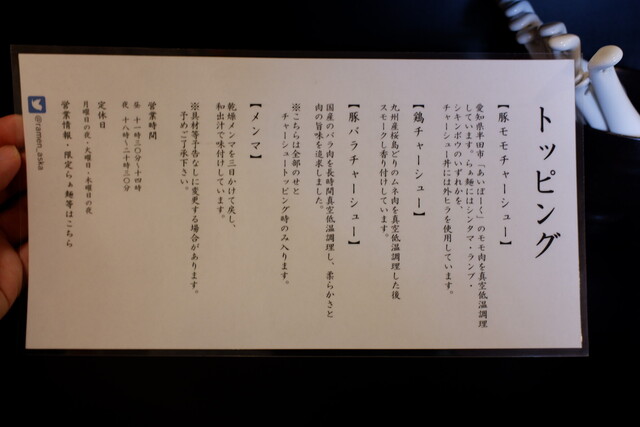 トッピング
【豚モモチャーシュー】
愛知県半田市「あいぽーく」のモモ肉を真空低温調理
しています。らぁ麺にはシンタマ・ランプ・
シキンボウのいずれかを、
チャーシュー丼には外ヒラを使用しています。
【鶏チャーシュー】
九州産桜島どりのムネ肉を真空低温調理した後
スモークし香り付けしています。
【豚バラチャーシュー】
国産のバラ肉を長時間真空低温調理し、柔らかさと
肉の旨味を追求しました。
※こちらは全部のせと
チャーシュートッピング時のみ入ります。
【メンマ】
乾燥メンマを三日かけて戻し、
和出汁で味付けしています。
※具材等予告なしに変更する場合があります。
予めご了承下さい。
営業時間
昼 十一時三〇分~十四時
夜 十八時~二十時三〇分
定休日
月曜日の夜・火曜日・木曜日の夜
営業情報・限定らぁ麺等はこちら
@ramen_aska